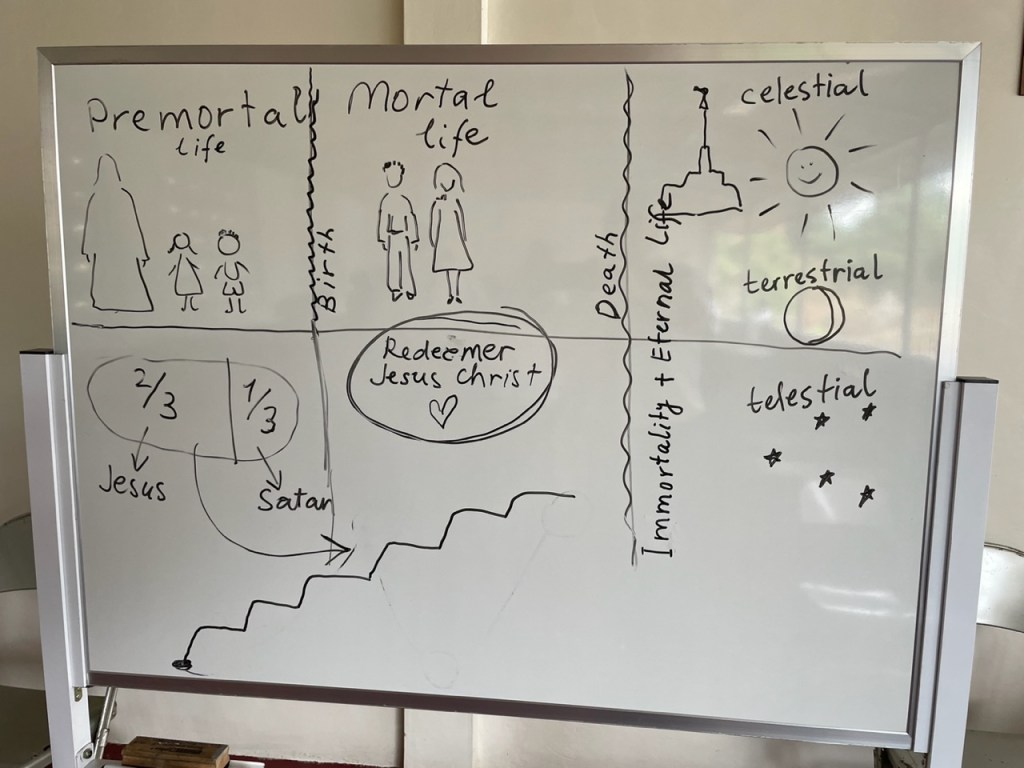 Premortal
life
Birth
Mortal
life
Death
Immortality + Eternal Life
celestial
terrestrial
telestial
2/3
1/3
Jesus
Satan
Redeemer
Jesus Christ